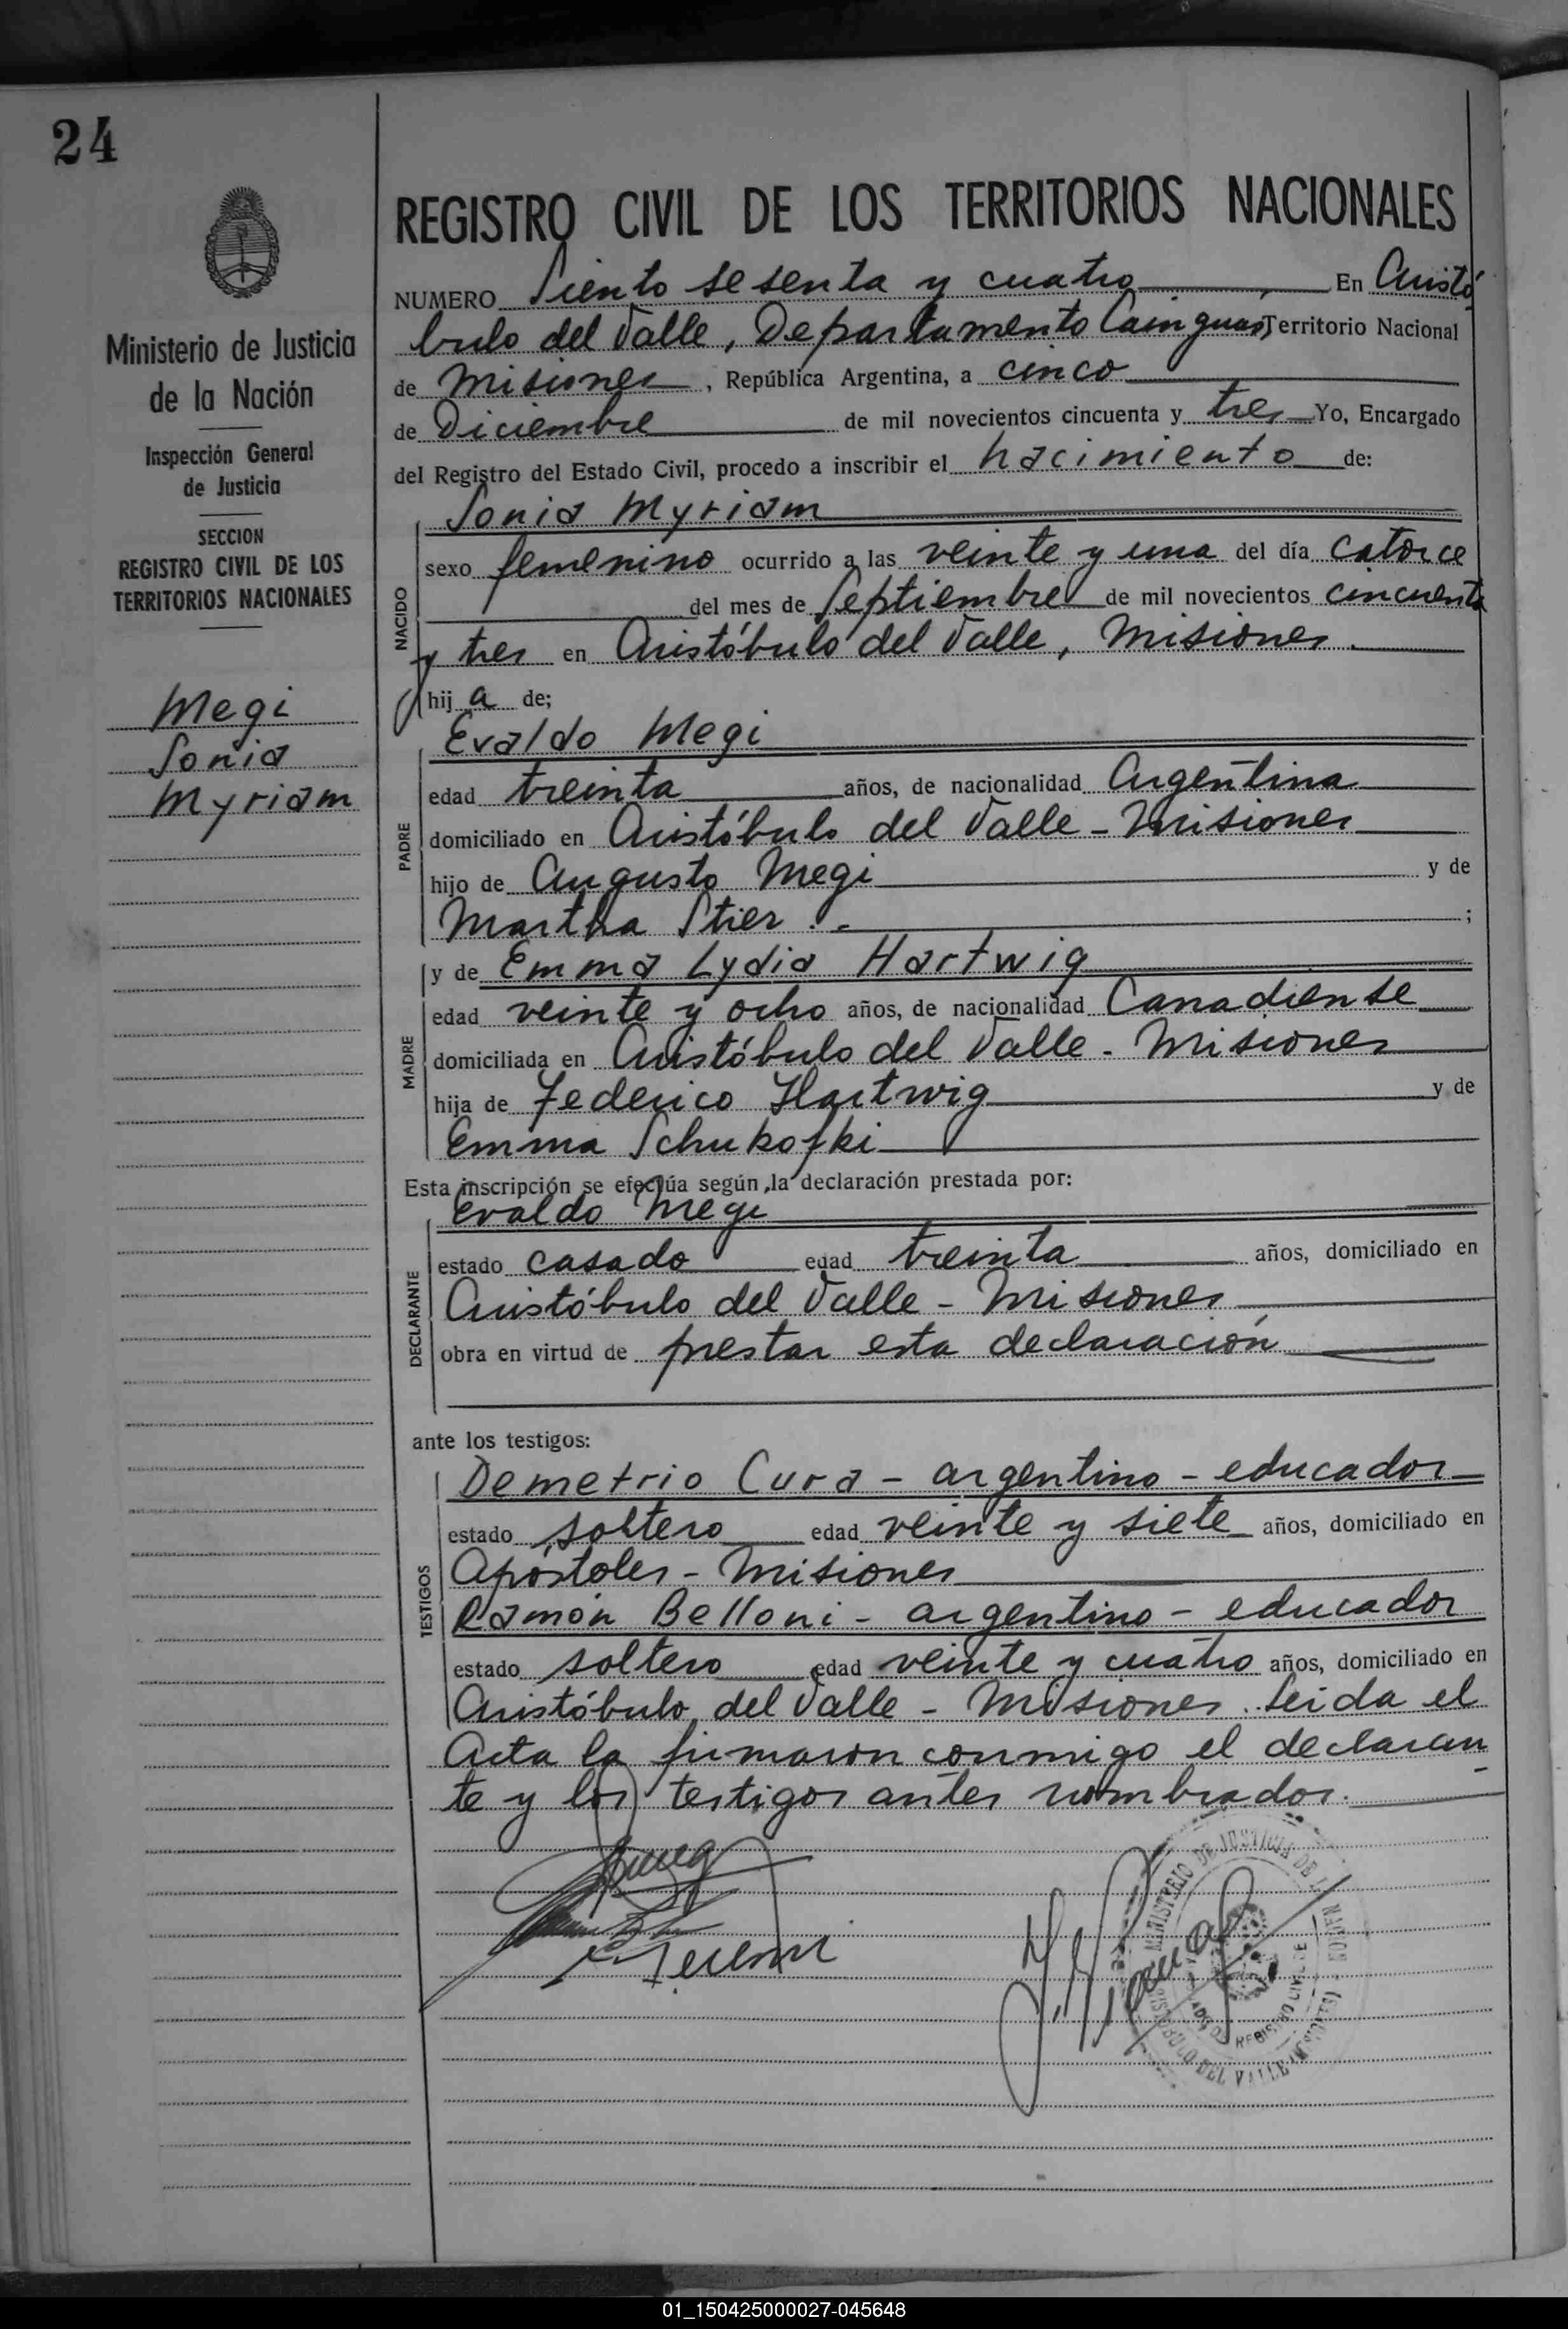 24
Ministerio de Justicia
de la Nación
Inspección General
de Justicia
SECCION
REGISTRO CIVIL DE LOS
TERRITORIOS NACIONALES
Megi
Sonia
Myriam
REGISTRO CIVIL DE LOS TERRITORIOS NACIONALES
NUMERO Siento sesenta y cuatro En Aristó
bulo del Valle, Departamento Cainguas, Territorio Nacional
de Misiones, República Argentina, a cinco
de Diciembre de mil novecientos cincuenta y tres Yo, Encargado
del Registro del Estado Civil, procedo a inscribir el nacimiento de:
Sonia Myriam
NACIDO
sexo femenino ocurrido a las veinte y una del día catorce
del mes de Septiembre de mil novecientos cincuenta
y tres en Aristóbulo del Valle, Misiones
hij a de;
Evaldo Megi
PADRE
edad treinta años, de nacionalidad Argentina
domiciliado en Aristóbulo del Valle - Misiones
hijo de Augusto Megi y de
Martha Stier . - ;
y de Emma Lydia Hartwig
MADRE
edad veinte y ocho años, de nacionalidad Canadiense
domiciliada en Aristóbulo del Valle - Misiones
hija de Federico Hartwig y de
Emma Schukofki
Esta inscripción se efectúa según la declaración prestada por:
Evaldo Megi
DECLARANTE
estado casado edad treinta años, domiciliado en
Aristóbulo del Valle - Misiones
obra en virtud de prestar esta declaración
ante los testigos:
Demetrio Cura - argentino - educador
TESTIGOS
estado soltero edad veinte y siete años, domiciliado en
Apóstoles - Misiones
Ramón Belloni - argentino - educador
estado soltero edad veinte y cuatro años, domiciliado en
Aristóbulo del Valle - Misiones. Leida el
Acta la firmaron conmigo el declaran
te y los testigos antes nombrados.
MINISTERIO DE JUSTICIA DE LA NACION
REGISTRO CIVIL DE
ARISTOBULO DEL VALLE (MISIONES)
01_150425000027-045648